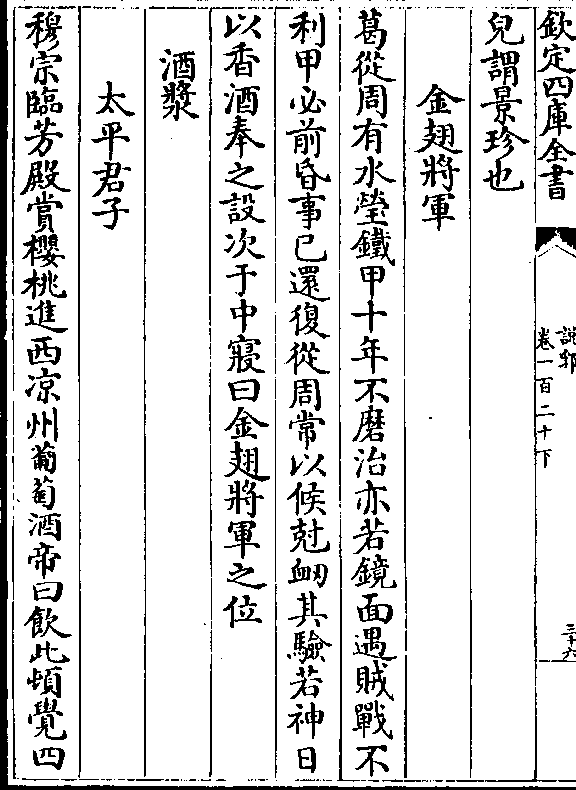 欽定四庫全書
說郛
卷一百二十下
三十六
兒謂景珍也
金翅將軍
葛從周有水瑩鐵甲十年不磨治亦若鏡面遇賊戰不
利甲必前昏事已還復從周常以候尅衂其驗若神日
以香酒奉之設次于中寢曰金翅將軍之位
酒漿
太平君子
穆宗臨芳殿賞櫻桃進西凉州葡萄酒帝曰飲此頓覺四